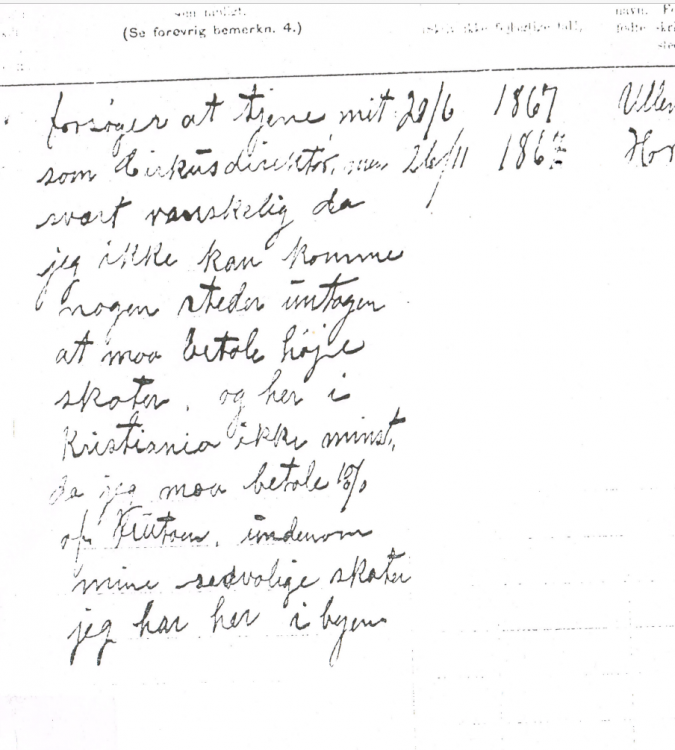 (Se forøvrig bemerkn. 4.)
forsøger at tjene mit 20/6 1867
som Cirkusdirektør, men 26/11 186
svært vanskelig da
jeg ikke kan komme
nogen steder üntagen
at maa betale højie
skater. og her i
Kristiania ikke minst,
da jeg maa betale 10%
af Brütoen. üindenom
mine sedvalige skater
jeg har her i byen